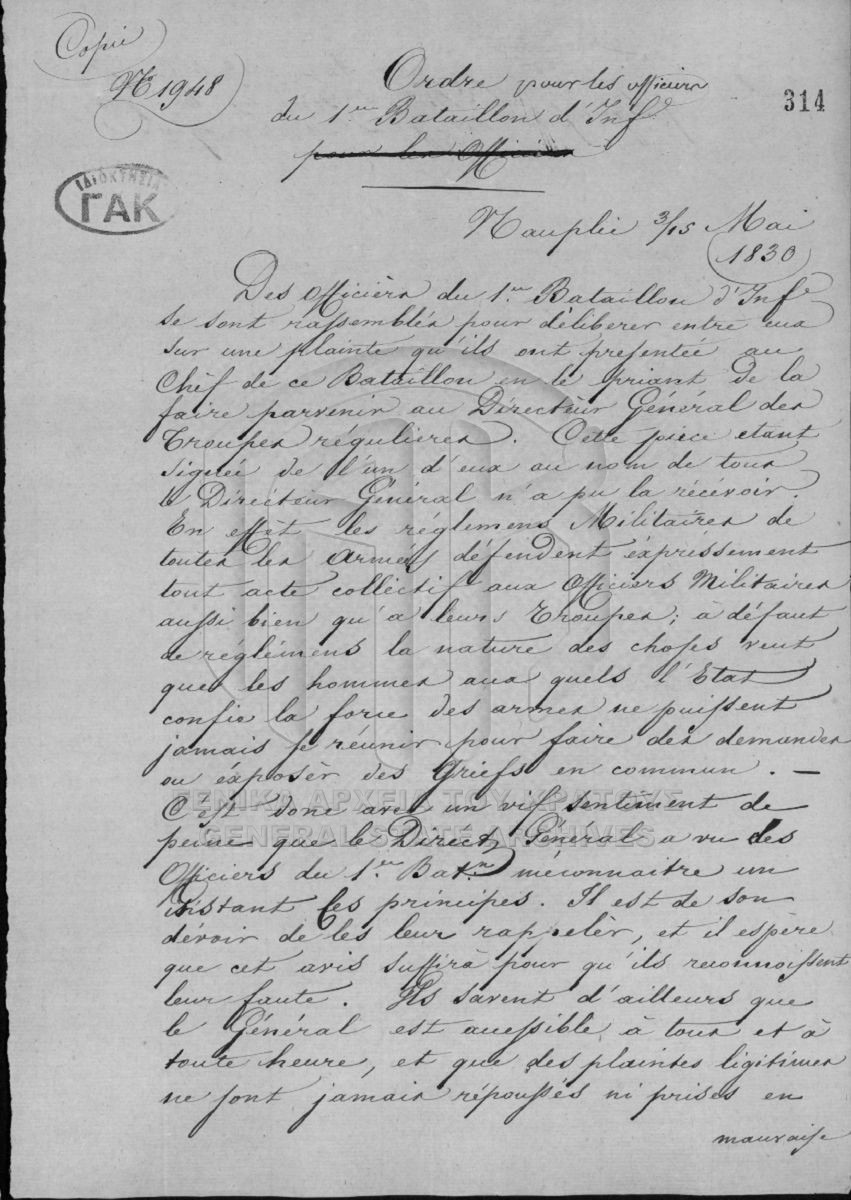 Copie
N° 1948
314
Ordre pour les officiers
du 1.er Bataillon d'Inf.e
pour les Officiers
ΙΔΙΟΚΤΗΣΙΑ
ΓΑΚ
Nauplie 3/15 Mai
1830
Des Officièrs du 1.er Bataillon d'Inf.e
se sont rassemblés pour déliberer entre eux
sur une plainte qu'ils ont presentée au
Chèf de ce Bataillon en le priant de la
faire parvenir au Dirécteur Général des
Troupes régulieres. Cette pièce etant
signée de l'un d'eux au nom de tous
le Dirécteur Général n'a pu la récévoir.
En effèt les réglemens Militaires de
toutes les armées défendent éxpréssement
tout acte collectif aux Officiers Militaires
aussi bien qu'a leurs Troupes; à défaut
de réglémens la nature des choses veut
que les hommes aux quels l'Etat
confie la force des armes ne puissent
jamais se réunir pour faire des demandes
ou éxposèr des Griefs en commun. —
C'est donc avec un vif sentiment de
peine que le Direct.r Général a vu des
Officiers du 1.er Bat.n méconnaitre un
instant ces principes. Il est de son
dévoir de les leur rappelèr, et il espère
que cet avis suffirà pour qu'ils reconnoissent
leur faute. Ils savent d'ailleurs que
le Général est acessible à tous et à
toute heure, et que des plaintes ligitimes
ne sont jamais répoussés ni prises en
mauvaise
ΓΕΝΙΚΑ ΑΡΧΕΙΑ ΤΟΥ ΚΡΑΤΟΥΣ
GENERAL STATE ARCHIVES